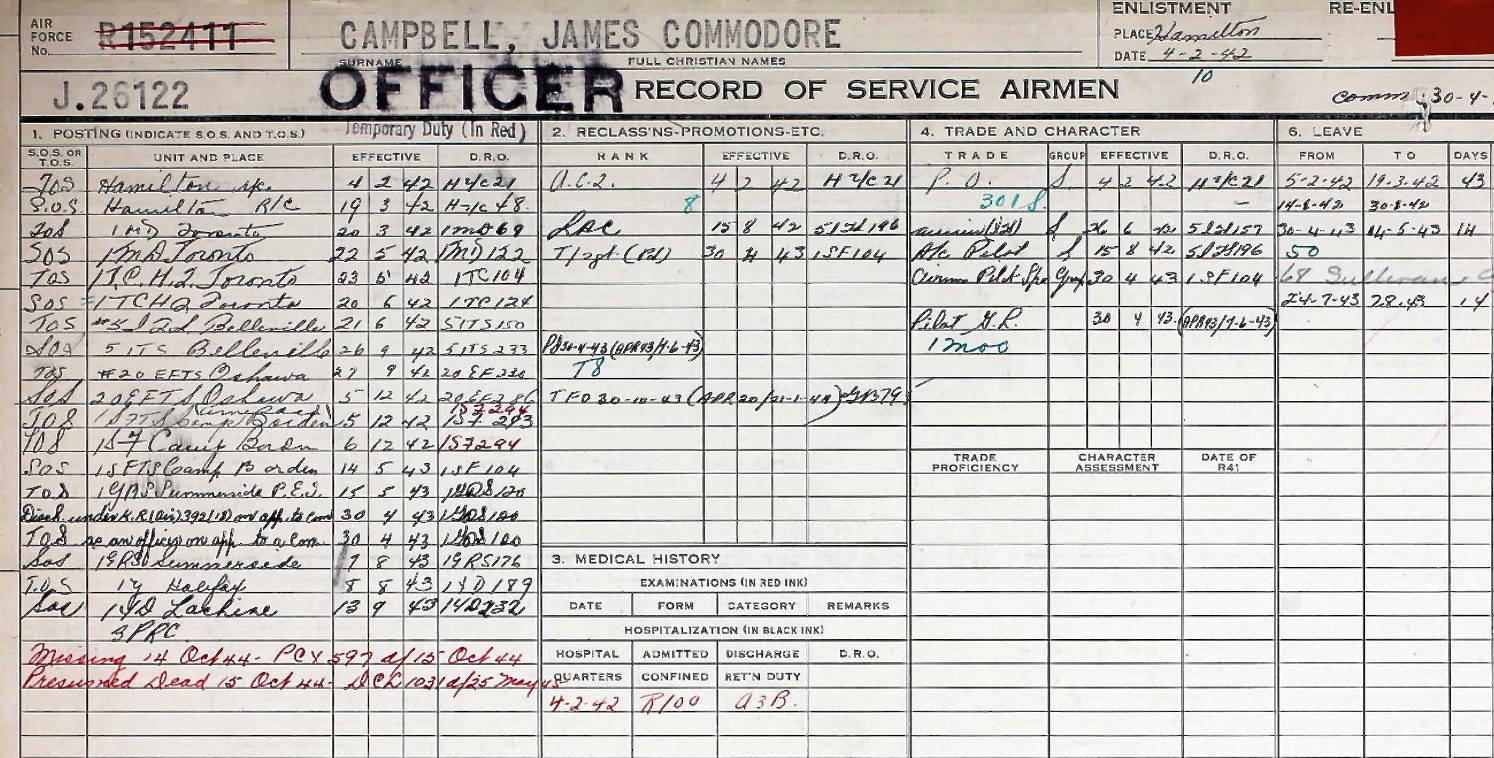 AIR FORCE No. R152411
CAMPBELL, JAMES COMMODORE
SURNAME FULL CHRISTIAN NAMES
ENLISTMENT
PLACE Hamilton
DATE 4-2-42
10
RE-ENL
J.26122
OFFICER RECORD OF SERVICE AIRMEN
comm 30-4-
1. POSTING (INDICATE S.O.S. AND T.O.S.) Temporary Duty (In Red)
S.O.S. OR T.O.S. UNIT AND PLACE EFFECTIVE D.R.O.
TOS Hamilton 4 2 42
S.O.S. Hamilton R/C 19 3 42
TOS 1 MD Toronto 20 3 42 1MD69
SOS 1 MD Toronto 22 5 42 1MD 122
TOS 1T.C.H.Q. Toronto 23 5 42 1TC104
SOS 1TCHQ Toronto 20 6 42 1TC124
TOS Belleville 21 6 42 5ITS150
SOS 5 ITS Belleville 26 9 42 5 ITS 233
TOS #20 EFTS Oshawa 27 9 42 20 EF 230
SOS 20 EFTS Oshawa 5 12 42 20EF286
1S7294
TOS Camp Borden 5 12 42 293
TOS Camp Borden 6 12 42 1S7294
SOS 1SFTS Camp Borden 14 5 43 1SF104
TOS 1 GRS Summerside P.E.I. 15 5 43
Disch. under K.R.(Air) 392(18) on app. to com 30 4 43
TOS as an officer on app. to a Com. 30 4 43
SOS 1GRS Summerside 7 8 43 1GRS176
T.O.S 1Y Halifax 8 8 43 1YD189
SOS 1YD Lachine 13 9 43 1YD232
3 PRC.
Missing 14 Oct 44- PCX 597 d/15 Oct 44
Presumed Dead 15 Oct 44- DCL 1031 d/25 May 45
2. RECLASS'NS-PROMOTIONS-ETC.
RANK EFFECTIVE D.R.O.
A.C.2. 4 2 42
8
LAC 15 8 42 196
T/Sgt. (Pd) 30 4 43 1SF104
P/O 30-4-43 (APR93/7-6-43)
T8
TFO 30-10-43 (APR20/21-1-44)
3. MEDICAL HISTORY
EXAMINATIONS (IN RED INK)
DATE FORM CATEGORY REMARKS
HOSPITALIZATION (IN BLACK INK)
HOSPITAL ADMITTED DISCHARGE D.R.O.
QUARTERS CONFINED RET'N DUTY
4-2-42 R/100 A3B.
4. TRADE AND CHARACTER
TRADE GROUP EFFECTIVE D.R.O.
P.O. S 4 2 42
301S
S 26 6 42 157
A/c Pilot S 15 8 42 196
Airmen Pilot Spec Group 30 4 43 1SF104
Pilot G.R. 30 4 43 (APR93/7-6-43)
1 moo
TRADE PROFICIENCY CHARACTER ASSESSMENT DATE OF R41
6. LEAVE
FROM TO DAYS
5-2-42 19-3-42 43
14-8-42 30-8-42
30-4-43 14-5-43 14
50
68 Sullivan
24-7-43 7.8.43 14